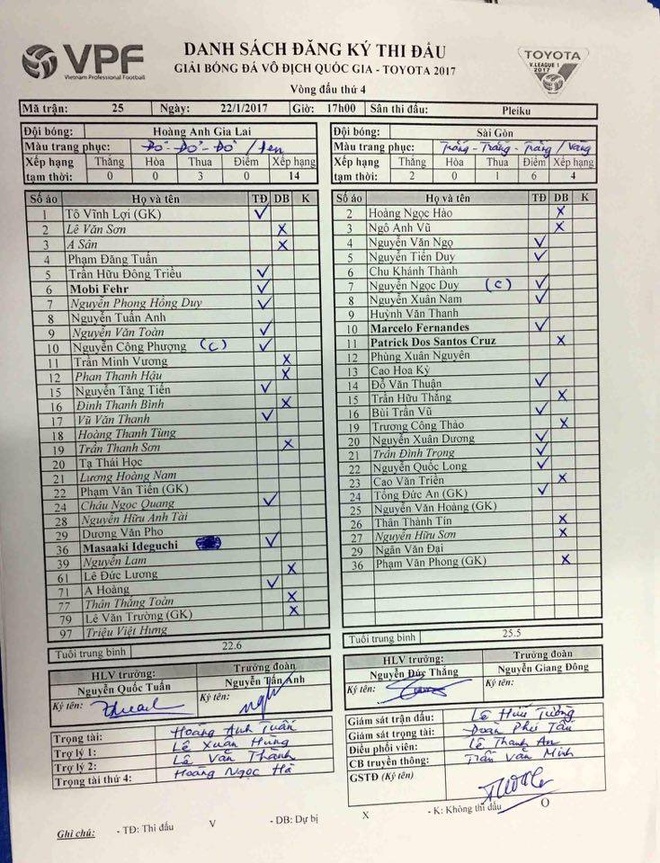 VPF
Vietnam Professional Football
DANH SÁCH ĐĂNG KÝ THI ĐẤU
GIẢI BÓNG ĐÁ VÔ ĐỊCH QUỐC GIA - TOYOTA 2017
Vòng đấu thứ 4
TOYOTA
V.LEAGUE 1
2017
Mã trận: 25 Ngày: 22/1/2017 Giờ: 17h00 Sân thi đấu: Pleiku
Đội bóng: Hoàng Anh Gia Lai
Màu trang phục: Đỏ - Đỏ - Đỏ / Đen
Xếp hạng tạm thời: Thắng Hòa Thua Điểm Xếp hạng
0 0 3 0 14
Số áo Họ và tên TĐ DB K
1 Tô Vĩnh Lợi (GK) V
2 Lê Văn Sơn X
3 A Sân X
4 Phạm Đăng Tuấn
5 Trần Hữu Đông Triều V
6 Mobi Fehr V
7 Nguyễn Phong Hồng Duy V
8 Nguyễn Tuấn Anh
9 Nguyễn Văn Toàn V
10 Nguyễn Công Phượng (C) V
11 Trần Minh Vương X
12 Phan Thanh Hậu X
15 Nguyễn Tăng Tiến V
16 Đinh Thanh Bình X
17 Vũ Văn Thanh V
18 Hoàng Thanh Tùng
19 Trần Thanh Sơn X
20 Tạ Thái Học
21 Lương Hoàng Nam
22 Phạm Văn Tiến (GK)
24 Châu Ngọc Quang V
28 Nguyễn Hữu Anh Tài
29 Dương Văn Pho
36 Masaaki Ideguchi V
39 Nguyễn Lam
61 Lê Đức Lương X
71 A Hoàng V
77 Thân Thắng Toàn X
79 Lê Văn Trường (GK) X
97 Triệu Việt Hưng
Tuổi trung bình 22.6
HLV trưởng: Nguyễn Quốc Tuấn
Trưởng đoàn Nguyễn Tấn Anh
Ký tên:
Ký tên:
Đội bóng: Sài Gòn
Màu trang phục: Trắng - Trắng - Trắng / Vàng
Xếp hạng tạm thời: Thắng Hòa Thua Điểm Xếp hạng
2 0 1 6 4
Số áo Họ và tên TĐ DB K
2 Hoàng Ngọc Hào X
3 Ngô Anh Vũ X
4 Nguyễn Văn Ngọ V
5 Nguyễn Tiến Duy V
6 Chu Khánh Thành
7 Nguyễn Ngọc Duy (C) V
8 Nguyễn Xuân Nam V
9 Huỳnh Văn Thanh
10 Marcelo Fernandes V
11 Patrick Dos Santos Cruz X
12 Phùng Xuân Nguyên
13 Cao Hoa Kỳ
14 Đỗ Văn Thuận V
15 Trần Hữu Thắng X
16 Bùi Trần Vũ V
19 Trương Công Thảo X
20 Nguyễn Xuân Dương V
21 Trần Đình Trọng V
22 Nguyễn Quốc Long V
23 Cao Văn Triền X
24 Tống Đức An (GK) V
25 Nguyễn Văn Hoàng (GK)
26 Thân Thành Tín X
27 Nguyễn Hữu Sơn X
29 Ngân Văn Đại
36 Phạm Văn Phong (GK) X
Tuổi trung bình 25.5
HLV trưởng: Nguyễn Đức Thắng
Trưởng đoàn Nguyễn Giang Đông
Ký tên:
Ký tên:
Trọng tài: Hoàng Anh Tuấn
Trợ lý 1: Lê Xuân Hùng
Trợ lý 2: Lê Văn Thành
Trọng tài thứ 4: Hoàng Ngọc Hà
Giám sát trận đấu: Lê Hữu Tường
Giám sát trọng tài: Đoàn Phú Tấn
Điều phối viên: Lê Thanh An
CB truyền thông: Trần Văn Minh
GSTĐ (Ký tên)
Ghi chú: - TĐ: Thi đấu V - DB: Dự bị X - K: Không thi đấu O